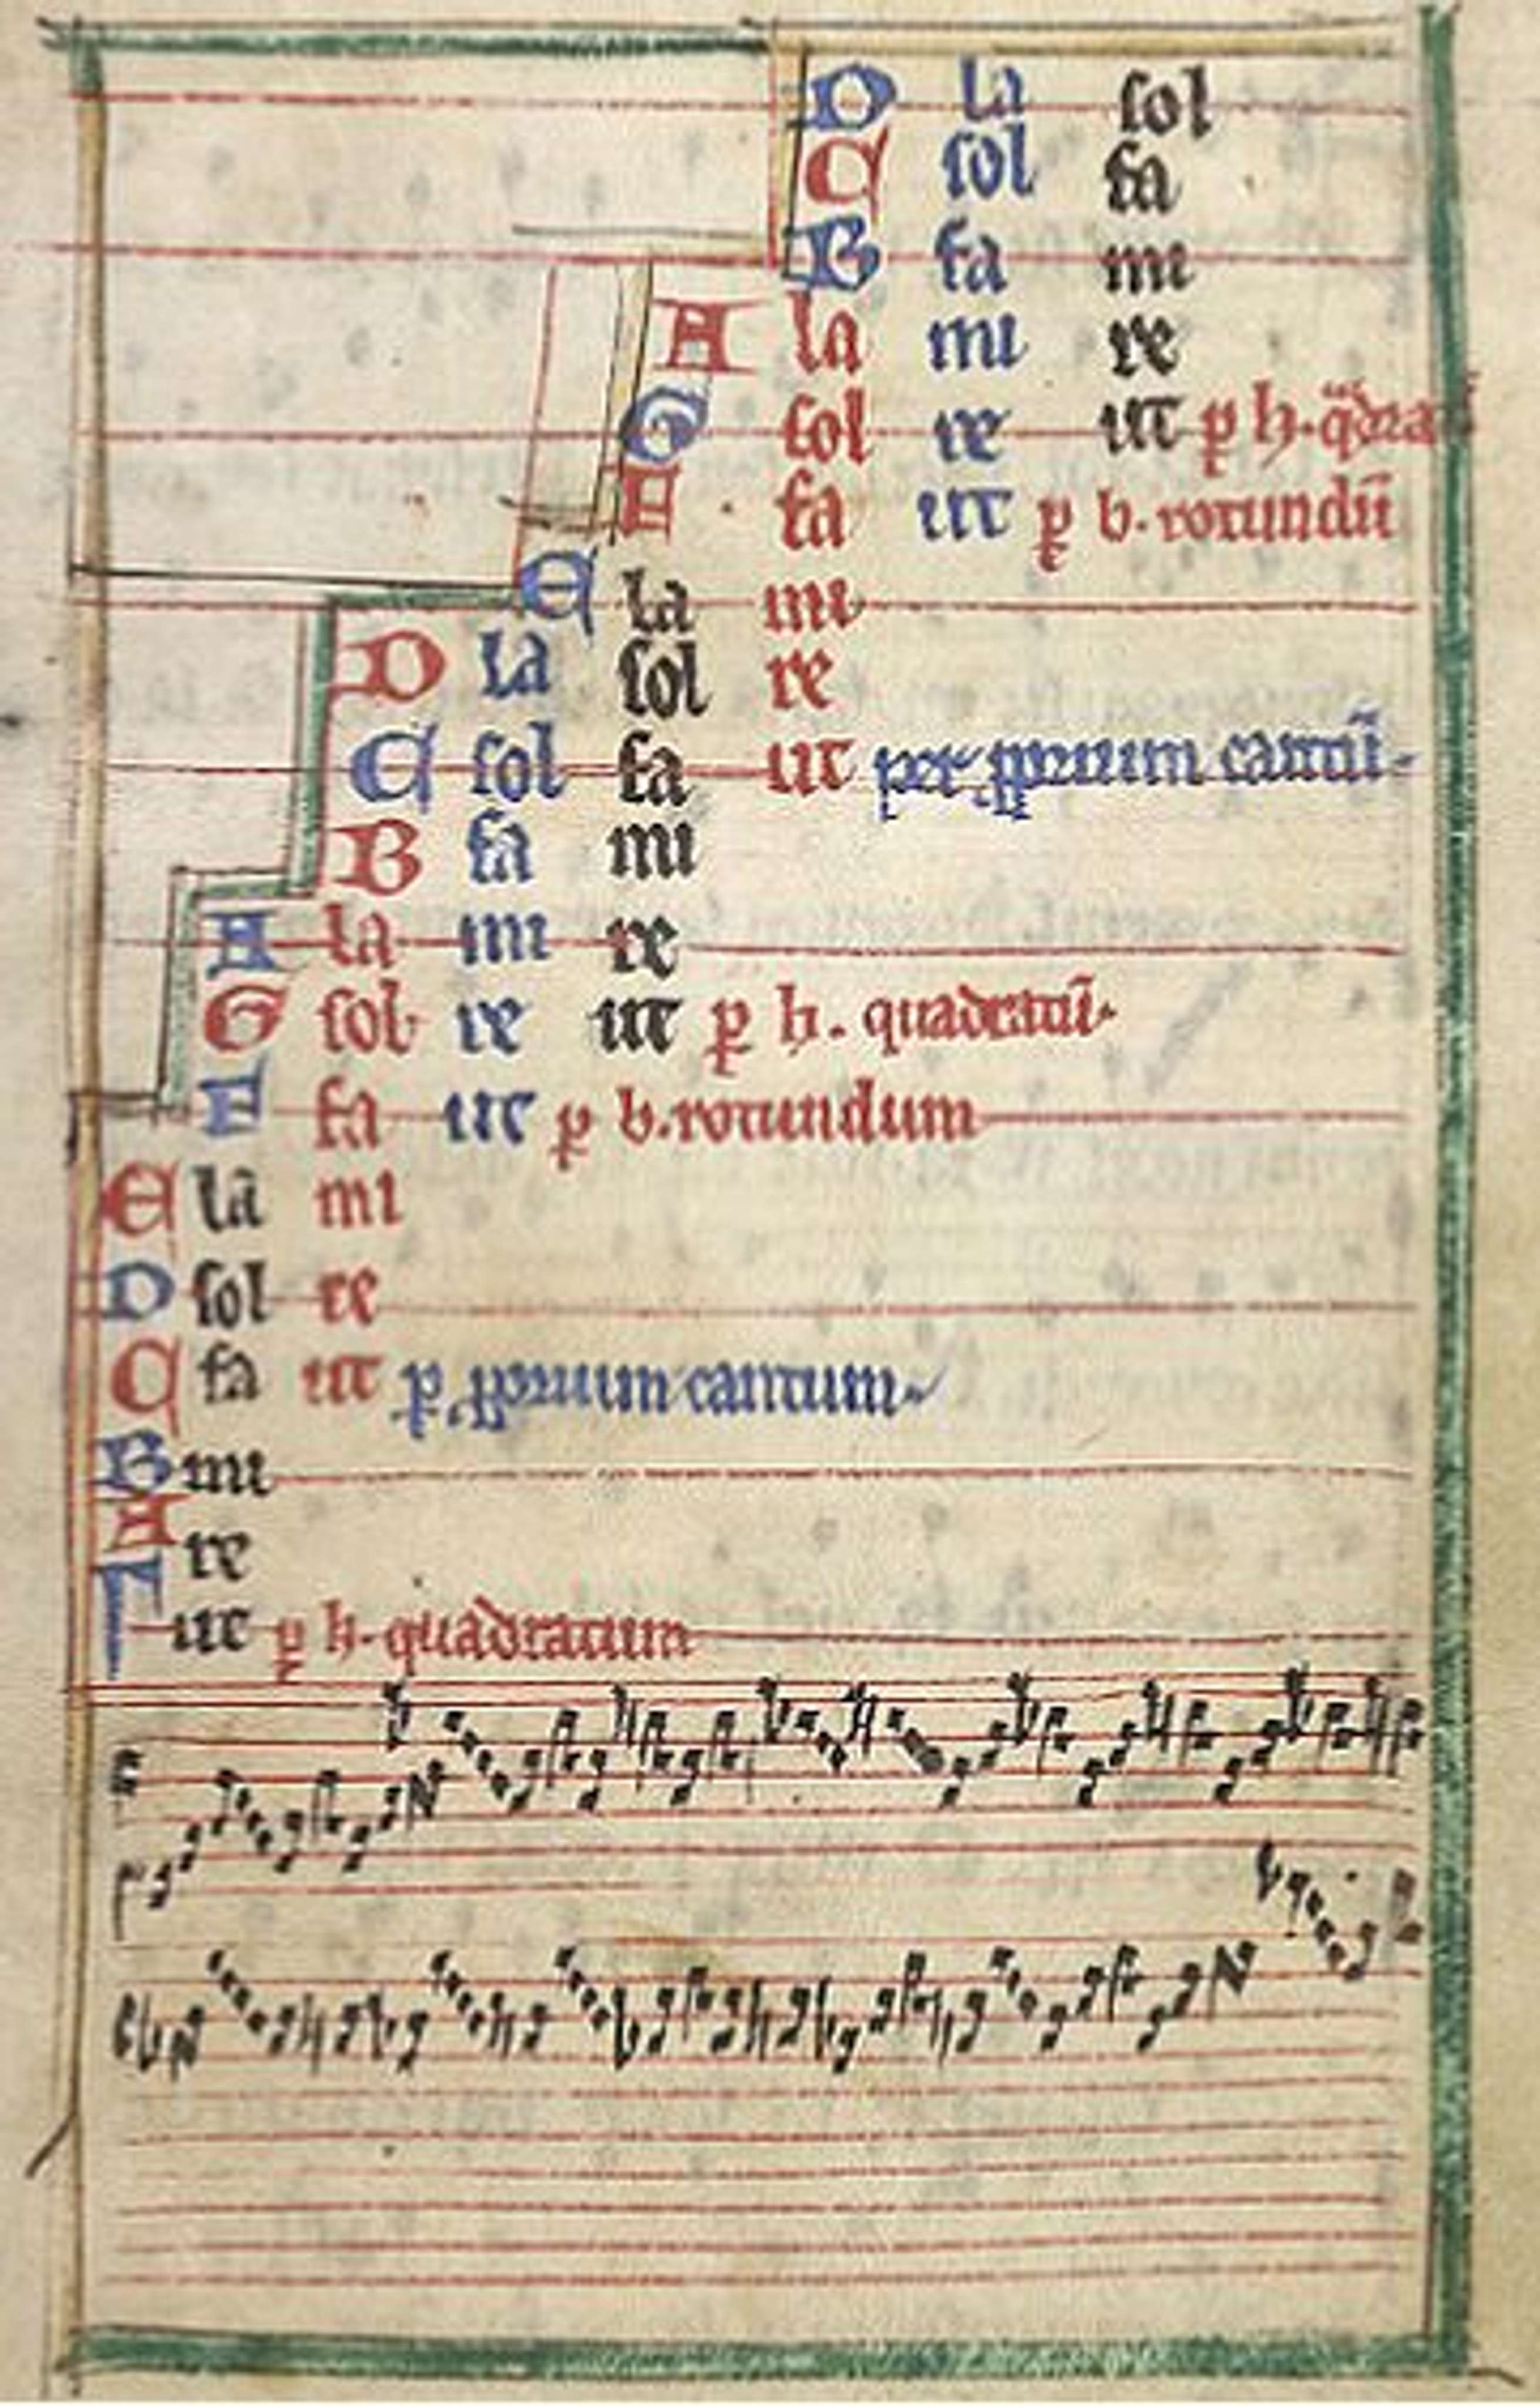 D la sol
C sol fa
B fa mi
A la mi re
G sol re ut p̱ h. q̈dra
F fa ut p̱ b. rotundū
E la mi
D la sol re
C sol fa ut per ꝓprium cantū
B fa mi
A la mi re
G sol re ut p̱ h. quadratū
F fa ut p̱ b. rotundum
E la mi
D sol re
C fa ut p̱ ꝓprium cantum
B mi
A re
Γ ut p̱ h. quadratum